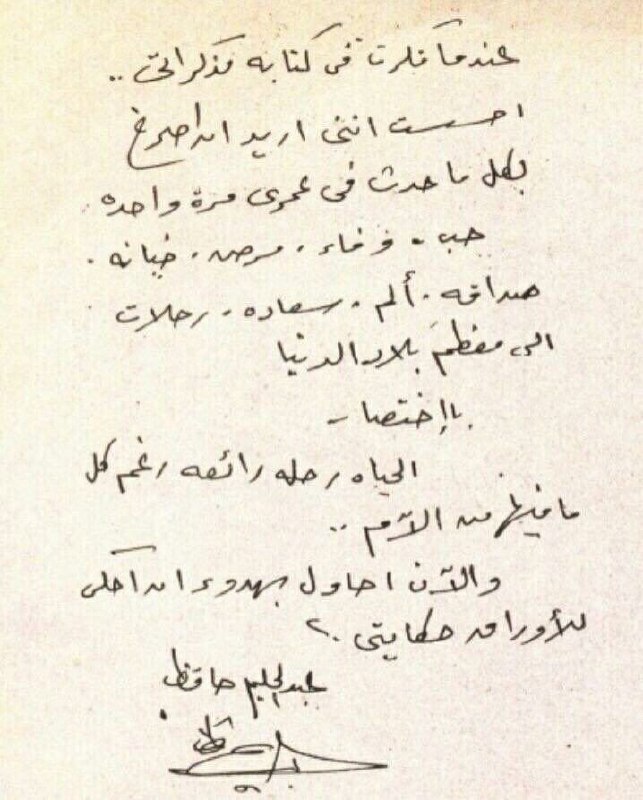 عندما فكرت فى كتابه مذكراتى ..
احسست اننى اريد ان اصرخ
بكل ما حدث فى عمرى مرة واحده
حب . وفاء . مرض . خيانه .
صداقه . ألم . سعاده . رحلات
الى معظم بلاد الدنيا
بإختصار -
الحياه رحله رائعه رغم كل
ما فيها من آلام ..
والآن احاول بهدوء ان احكى
للأوراق حكايتى ..
عبد الحليم حافظ